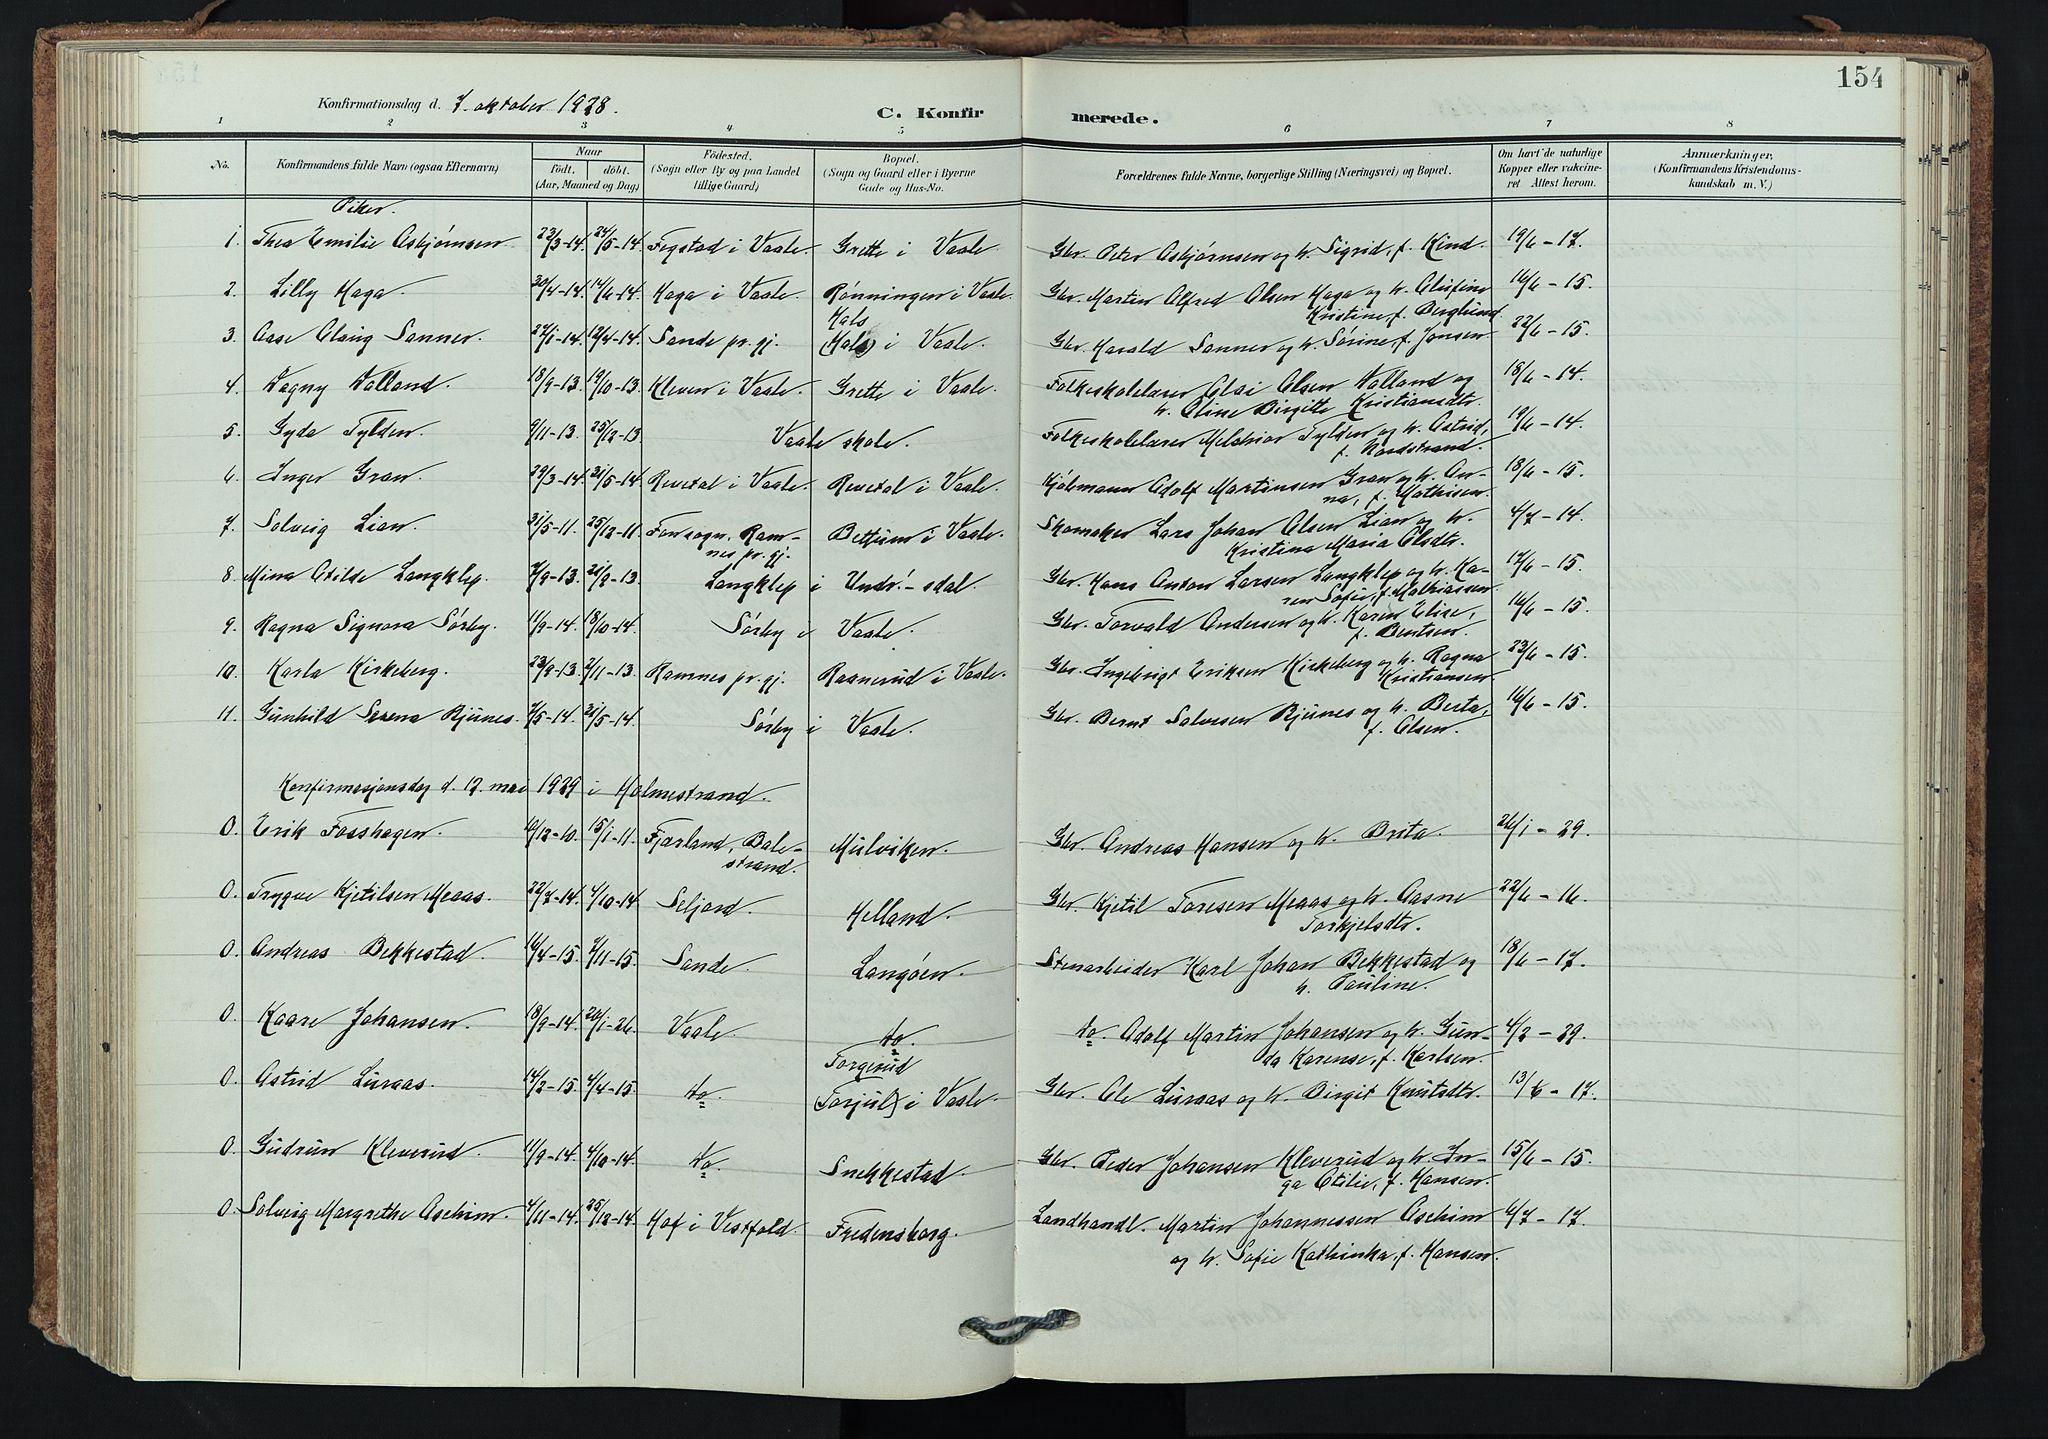 154
Konfirmationsdag d. 7. oktober 1928.
C. Konfirmerede.
1 2 3 4 5 6 7 8
No.
Konfirmandens fulde Navn (ogsaa Efternavn)
Naar
födt. döbt.
(Aar, Maaned og Dag)
Födested.
(Sogn eller By og paa Landet
tillige Gaard)
Bopæl.
(Sogn og Gaard eller i Byerne
Gade og Hus-No.
Forældrenes fulde Navne, borgerlige Stilling (Næringsvei) og Bopæl.
Om havt de naturlige
Kopper eller vakcine-
ret Attest herom.
Anmærkninger.
(Konfirmandens Kristendoms-
kundskab m. V.)
Piker.
1. Thea Emilie Asbjørnsen 22/3-14. 24/5-14. Fegstad i Vaale. Grette i Vaale Gbr. Peter Asbjørnsen og h. Sigrid, f. Kind. 19/6-17.
2. Lilly Haga. 30/4-14. 14/6-14. Haga i Vaale. Rønningen i Vaale. Gbr. Martin Alfred Olsen Haga og h. Olufine 16/6-15.
Kristine, f. Berglund.
Hals
3. Aase Olaug Sanner. 27/1-14. 12/4-14. Sande pr.gj. (Hals) i Vaale. Gbr. Harald Sanner og h. Sørine, f. Jonsen. 22/6-15.
4. Dagny Dalland. 18/9-13. 19/10-13. Kleven i Vaale. Grette i Vaale. Folkeskolelærer Olai Olsen Dalland og 18/6-14.
h. Oline Birgitte Kristiansdtr.
5. Gyda Tylden. 9/11-13. 25/12-13. Vaale skole. Folkeskolelærer Melchior Tylden og h. Astrid, 19/6-14.
f. Nordstrand.
6. Inger Gran. 29/3-14. 21/5-14. Revetal i Vaale. Revetal i Vaale. Kjøbmann Adolf Martinsen Gran og h. An- 18/6-15.
na, f. Mathisen.
7. Solveig Lian. 31/5-11. 25/12-11. Fonsogn, Ram- Bettum i Vaale. Skomaker Lars Johan Olsen Lian og h. 4/7-14.
nes pr.gj. Kristina Maria Olsdtr.
8. Mina Otilde Langklep. 7/9-13. 21/9-13. Langklep i Undr.-sdal Gbr. Hans Anton Larsen Langklep og h. Ka- 17/6-15.
ren Sofie, f. Mathiassen.
9. Ragna Signora Sørby. 11/9-14. 18/10-14. Sørby i Vaale. Gbr. Torvald Andersen og h. Karen Elise, 16/6-15.
f. Bentsen.
10. Karla Kirkeberg. 23/9-13. 2/11-13. Ramnes pr.gj. Raanerud i Vaale. Gbr. Ingebrigt Eriksen Kirkeberg og h. Ragna 23/6-15.
Kristiansen.
11. Gunhild Serena Bjunes. 7/5-14. 21/5-14. Sørby i Vaale. Gbr. Bernt Salvesen Bjunes og h. Berta, 16/6-15.
f. Olsen.
Konfirmasjonsdag d. 12. mai 1929 i Holmestrand.
0. Erik Fosshagen. 10/12-10. 15/1-11. Fjærland, Bale- Mulviken. Gbr. Andreas Hansen og h. Brita. 26/1-29.
strand.
0. Trygve Kjetilsen Meaas. 22/7-14. 4/10-14. Seljord. Helland. Gbr. Kjetil Toresen Meaas og h. Aasne 22/6-16.
Torkjelsdtr.
0. Andreas Bekkestad. 16/4-15. 7/11-15. Sande. Langøen. Stenarbeider Karl Johan Bekkestad og 18/6-17.
h. Pauline.
0. Kaare Johansen. 18/9-14. 20/1-26. Vaale do. do. Adolf Martin Johansen og h. Gun- 4/2-29.
da Karense, f. Karlsen.
Torgerud
0. Astrid Luraas. 14/2-15. 4/4-15. do. (Torjul) i Vaale. Gbr. Ole Luraas og h. Birgit Knutsdtr. 13/6-17.
0. Gudrun Kleverud. 11/9-14. 4/10-14. do. Snekkestad. Gbr. Peder Johansen Kleverud og h. In- 15/6-15.
ga Otilie, f. Hansen.
0. Solveig Margrethe Aschim. 4/11-14. 25/12-14. Hof i Vestfold. Fredensborg. Landhandl. Martin Johannessen Aschim 4/7-17.
og h. Sofie Kathinka, f. Hansen.